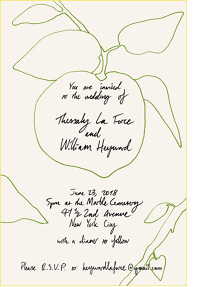 You are invited
to the wedding of
Thessaly La Force
and
William Heyward
June 23, 2018
5pm at the Marble Cemetery
41 ½ 2nd Avenue
New York City
with a dinner to follow
Please R.S.V.P. to heywardlaforce@gmail.com